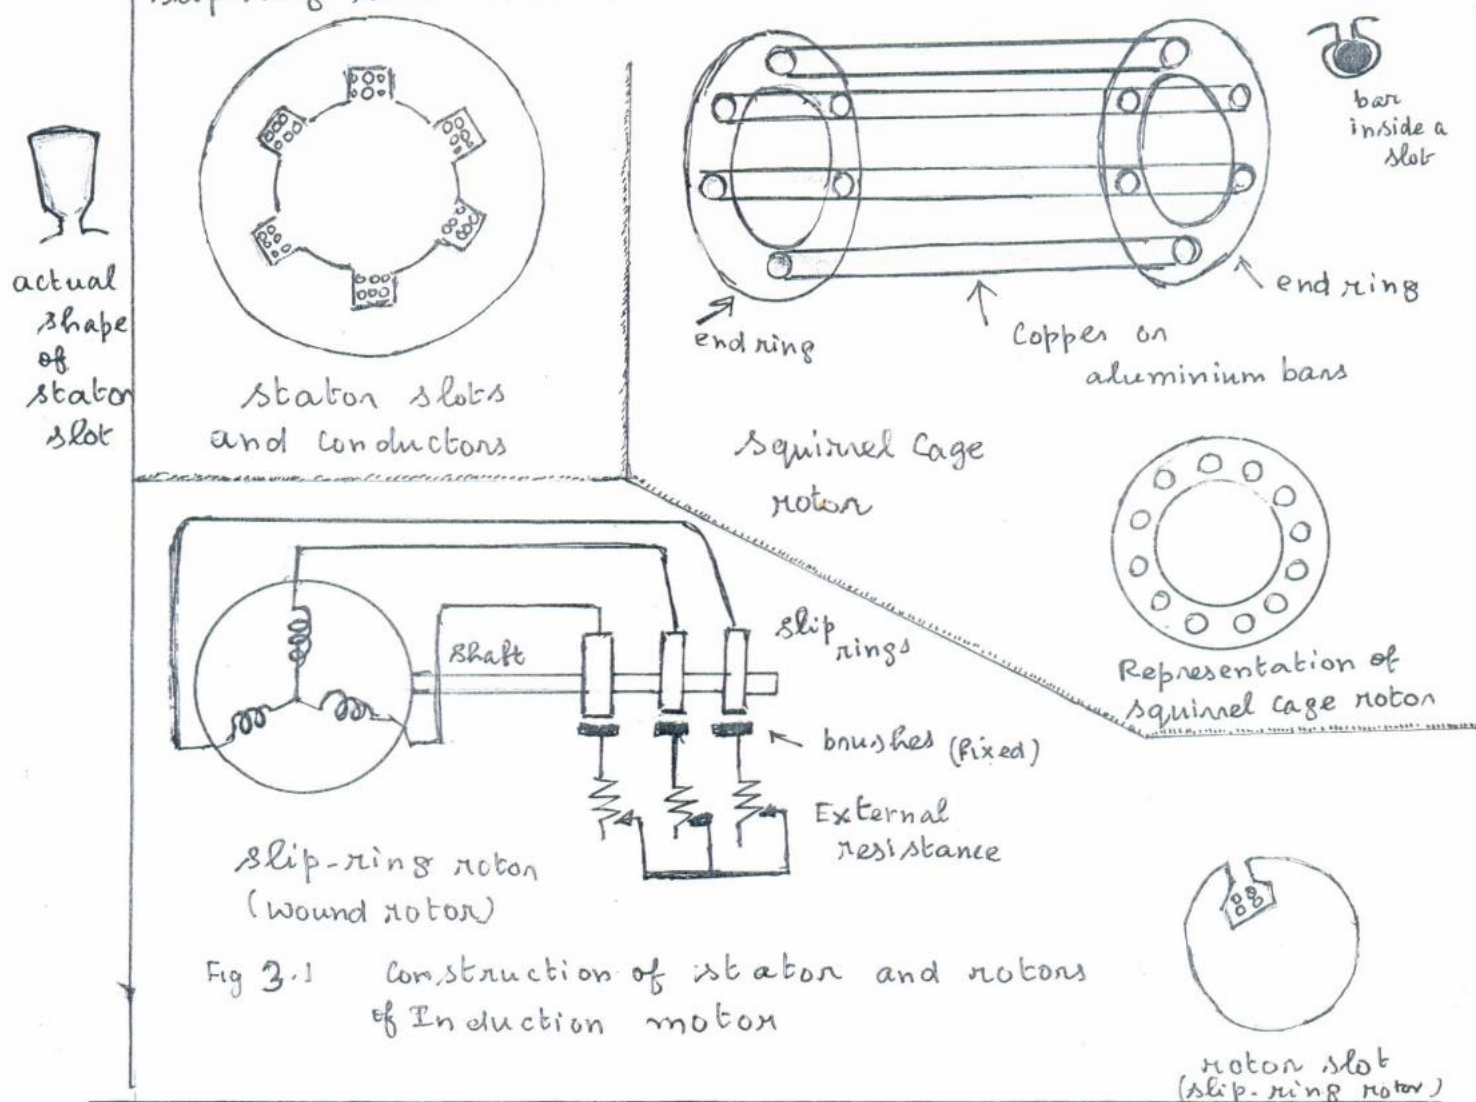 actual
shape
of
stator
slot
stator slots
and conductors
bar
inside a
slot
end ring
end ring
Copper or
aluminium bars
Squirrel Cage
rotor
Representation of
squirrel cage rotor
shaft
slip
rings
brushes (fixed)
External
resistance
slip-ring rotor
(wound rotor)
Fig 3.1 Construction of stator and rotors
of Induction motor
rotor slot
(slip-ring rotor)